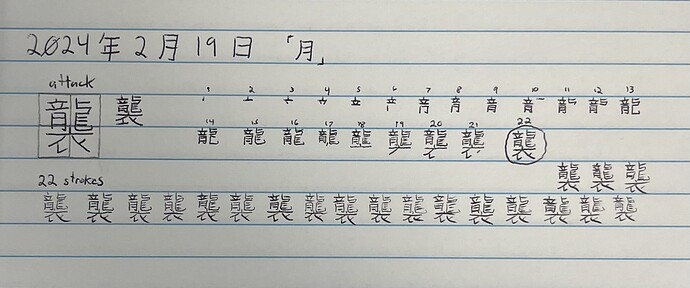 2024年2月19日 「月」
attack
襲 襲
1 2 3 4 5 6 7 8 9 10 11 12 13
14 15 16 17 18 19 20 21 22
襲
22 strokes
襲 襲 襲
襲 襲 襲 襲 襲 襲 襲 襲 襲 襲 襲 襲 襲 襲 襲 襲 襲